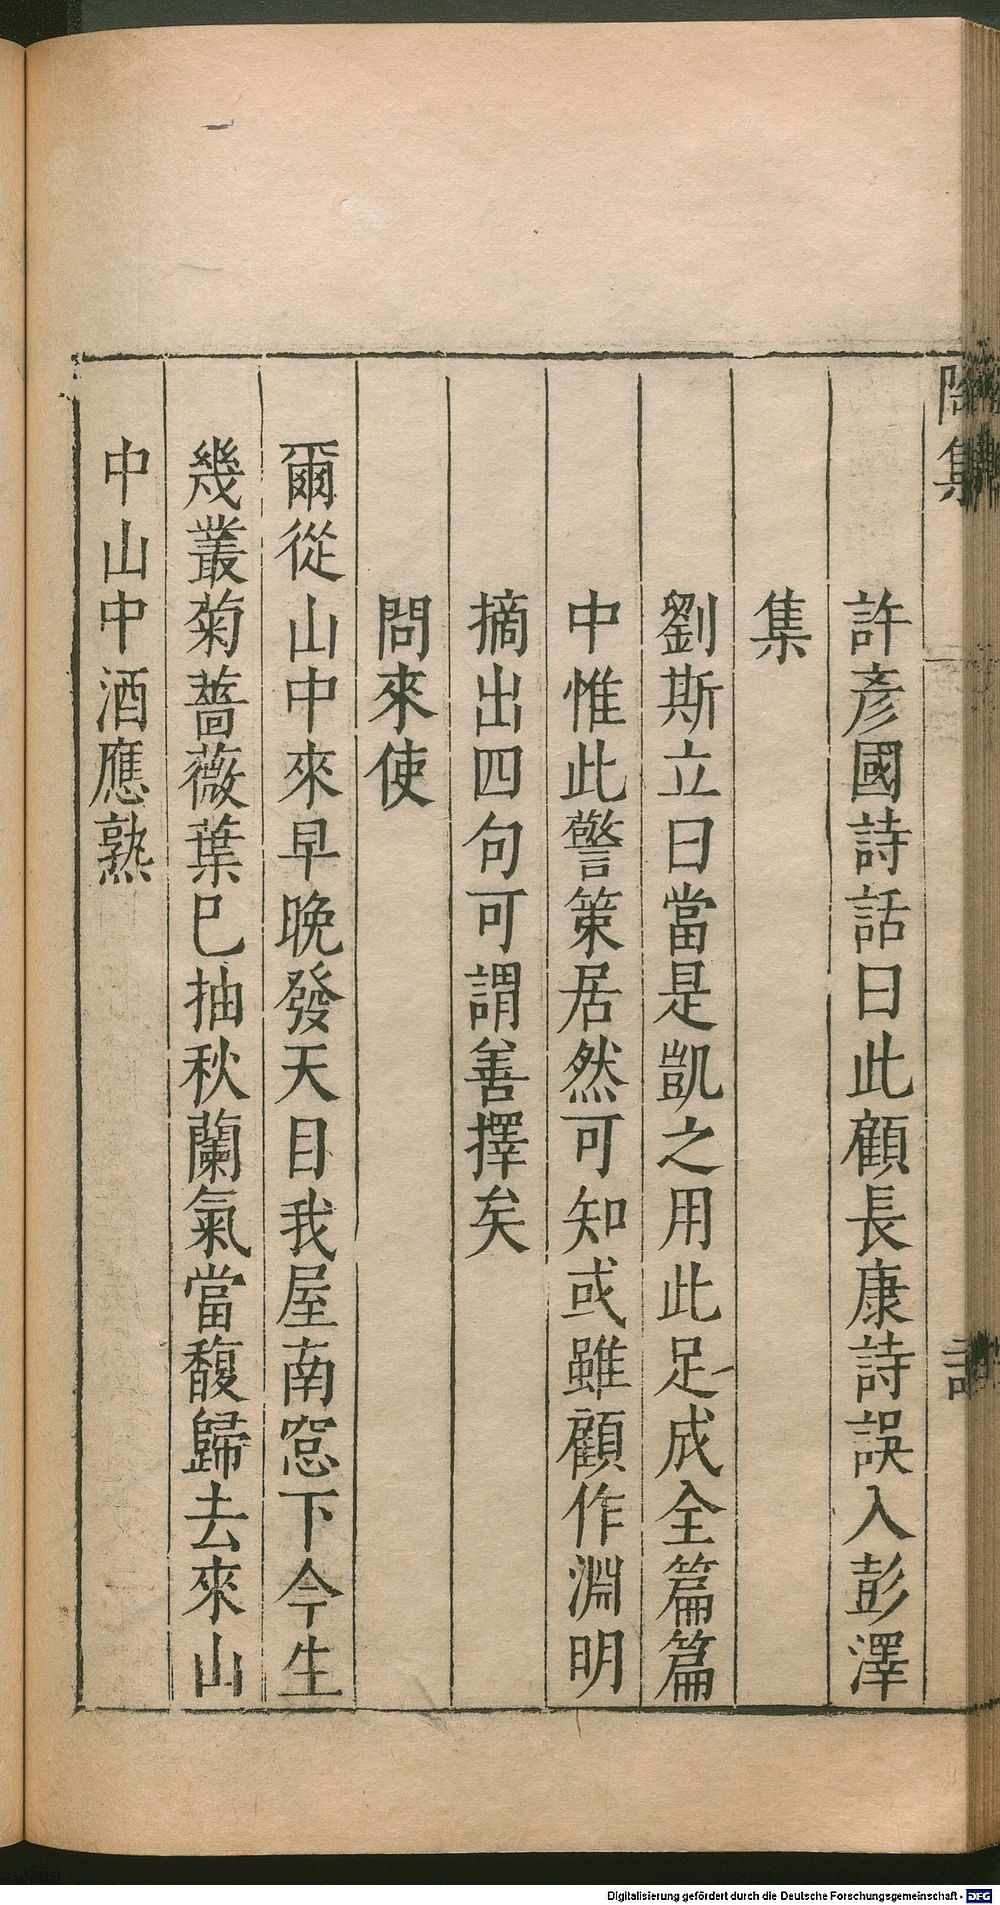 陶集
許彥國詩話曰此顧長康詩誤入彭澤
集
劉斯立曰當是凱之用此足成全篇篇
中惟此警策居然可知或雖顧作淵明
摘出四句可謂善擇矣
問來使
爾從山中來早晚發天目我屋南窓下今生
幾叢菊薔薇葉巳抽秋蘭氣當馥歸去來山
中山中酒應熟
Digitalisierung gefördert durch die Deutsche Forschungsgemeinschaft - DFG